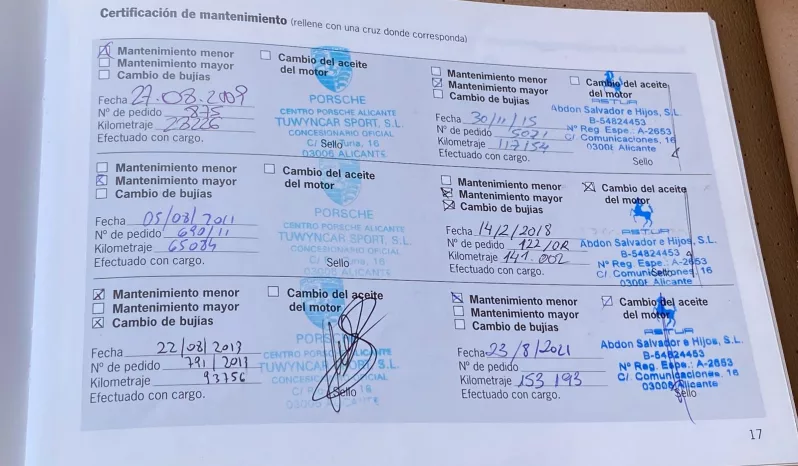 Certificación de mantenimiento (rellene con una cruz donde corresponda)
Mantenimiento menor
Mantenimiento mayor
Cambio de bujias
Cambio del aceite
del motor
Fecha 27.08.2009
Nº de pedido 875
Kilometraje 23226
Efectuado con cargo.
PORSCHE
CENTRO PORSCHE ALICANTE
TUWYNCAR SPORT, S.L.
CONCESIONARIO OFICIAL
Sello
03006 ALICANTE
Mantenimiento menor
Mantenimiento mayor
Cambio de bujias
Cambio del aceite
del motor
Fecha 05/08/2011
Nº de pedido 690/11
Kilometraje 65084
Efectuado con cargo.
PORSCHE
CENTRO PORSCHE ALICANTE
TUWYNCAR SPORT, S.L.
CONCESIONARIO OFICIAL
Sello
ALICANTE
Mantenimiento menor
Mantenimiento mayor
Cambio de bujias
Cambio del aceite
del motor
Fecha 22/08/2013
Nº de pedido 791/2013
Kilometraje 93756
Efectuado con cargo.
CENTRO
TUWYNCAR
Sello
03006 ALICANTE
Mantenimiento menor
Mantenimiento mayor
Cambio de bujias
Cambio del aceite
del motor
Fecha 30/11/15
Nº de pedido 5071
Kilometraje 117154
Efectuado con cargo.
ASTUR
Abdon Salvador e Hijos, S.L.
B-54824453
Nº Reg. Espe.: A-2653
C/ Comunicaciones, 16
Alicante
Sello
Mantenimiento menor
Mantenimiento mayor
Cambio de bujias
Cambio del aceite
del motor
Fecha 14/2/2018
Nº de pedido 122/OR
Kilometraje 141.002
Efectuado con cargo.
ASTUR
Abdon Salvador e Hijos, S.L.
B-54824453
Nº Reg. Espe.: A-2653
C/ Comunicaciones, 16
Sello
Alicante
Mantenimiento menor
Mantenimiento mayor
Cambio de bujias
Cambio del aceite
del motor
Fecha 23/8/2021
Nº de pedido
Kilometraje 153 193
Efectuado con cargo.
ASTUR
Abdon Salvador e Hijos, S.L.
B-54824453
Nº Reg. Espe.: A-2653
C/ Comunicaciones, 16
03006 Alicante
Sello
17